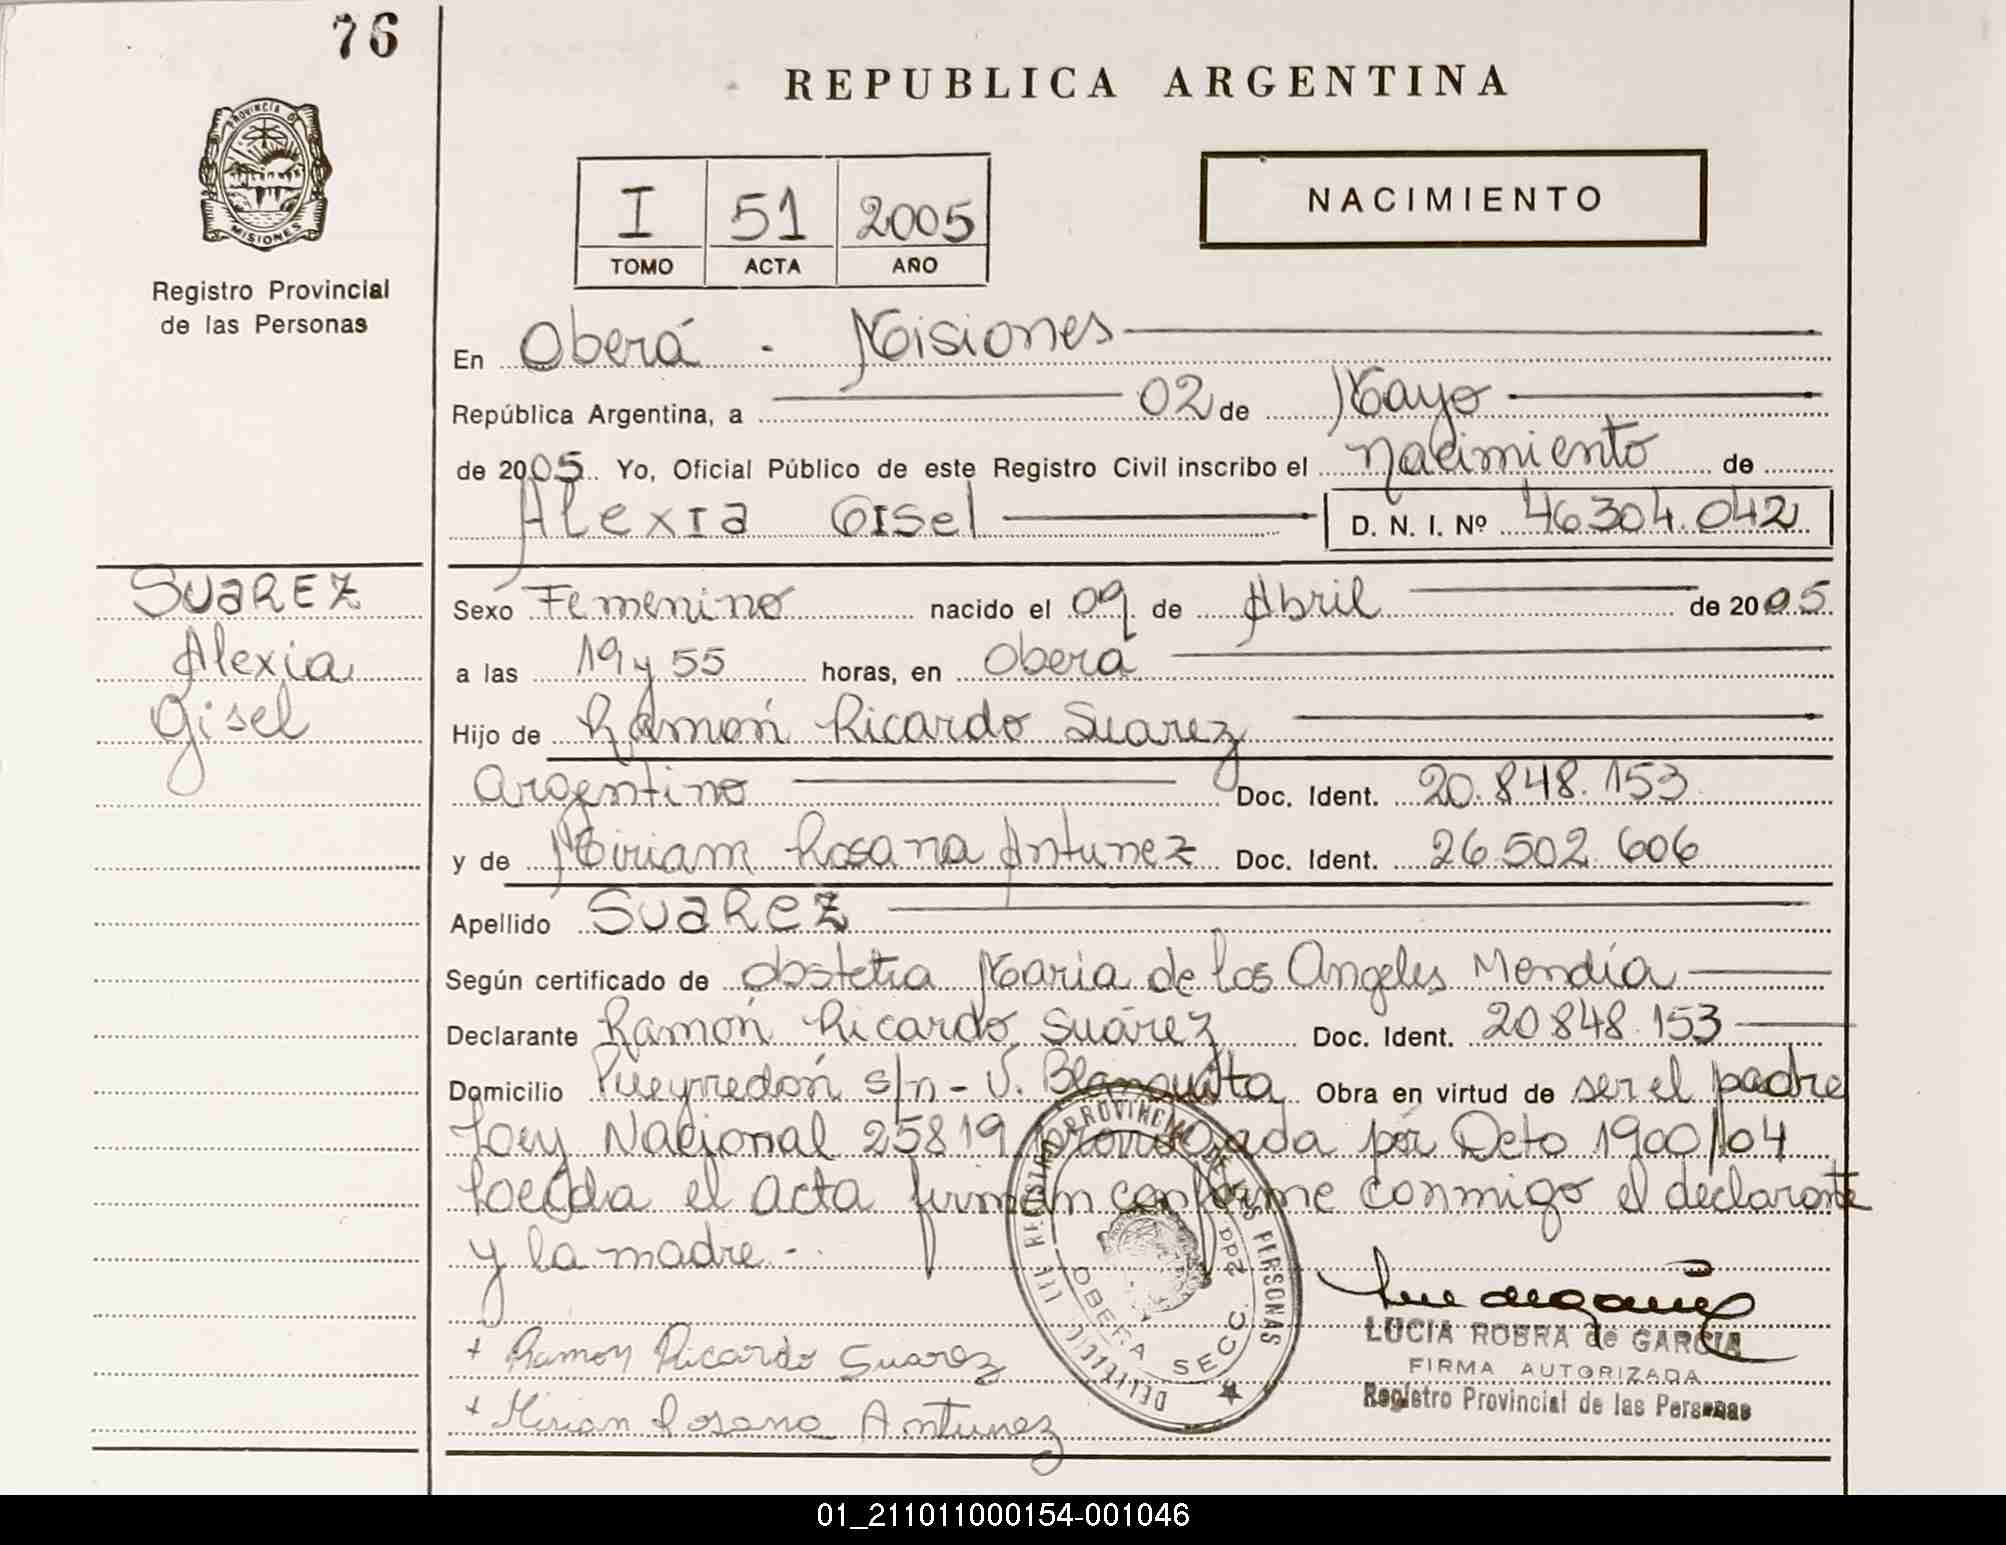 76
REPUBLICA ARGENTINA
PROVINCIA DE
MISIONES
Registro Provincial
de las Personas
I 51 2005
TOMO ACTA AÑO
NACIMIENTO
En Oberá - Misiones
República Argentina, a 02 de Mayo
de 2005 Yo, Oficial Público de este Registro Civil inscribo el nacimiento de
Alexia Gisel D. N. I. Nº 46.304.042
SUAREZ
Alexia
Gisel
Sexo Femenino nacido el 09 de Abril de 2005
a las 19 y 55 horas, en Oberá
Hijo de Ramón Ricardo Suarez
Argentino Doc. Ident. 20.848.153
y de Miriam Rosana Antunez Doc. Ident. 26.502.606
Apellido SUAREZ
Según certificado de obstetra Maria de los Angeles Mendía
Declarante Ramón Ricardo Suárez Doc. Ident. 20.848.153
Domicilio Pueyrredón s/n - V. Blanquita Obra en virtud de ser el padre
Ley Nacional 25819 por Dcto 1900/04
Leída el acta firman conforme conmigo el declarante
y la madre.-
+ Ramon Ricardo Suarez
+ Mirian Rosana Antunez
REGISTRO PROVINCIAL DE LAS PERSONAS
OBERA SECC. 2da
LUCIA ROBRA de GARCIA
FIRMA AUTORIZADA
Registro Provincial de las Personas
01_211011000154-001046